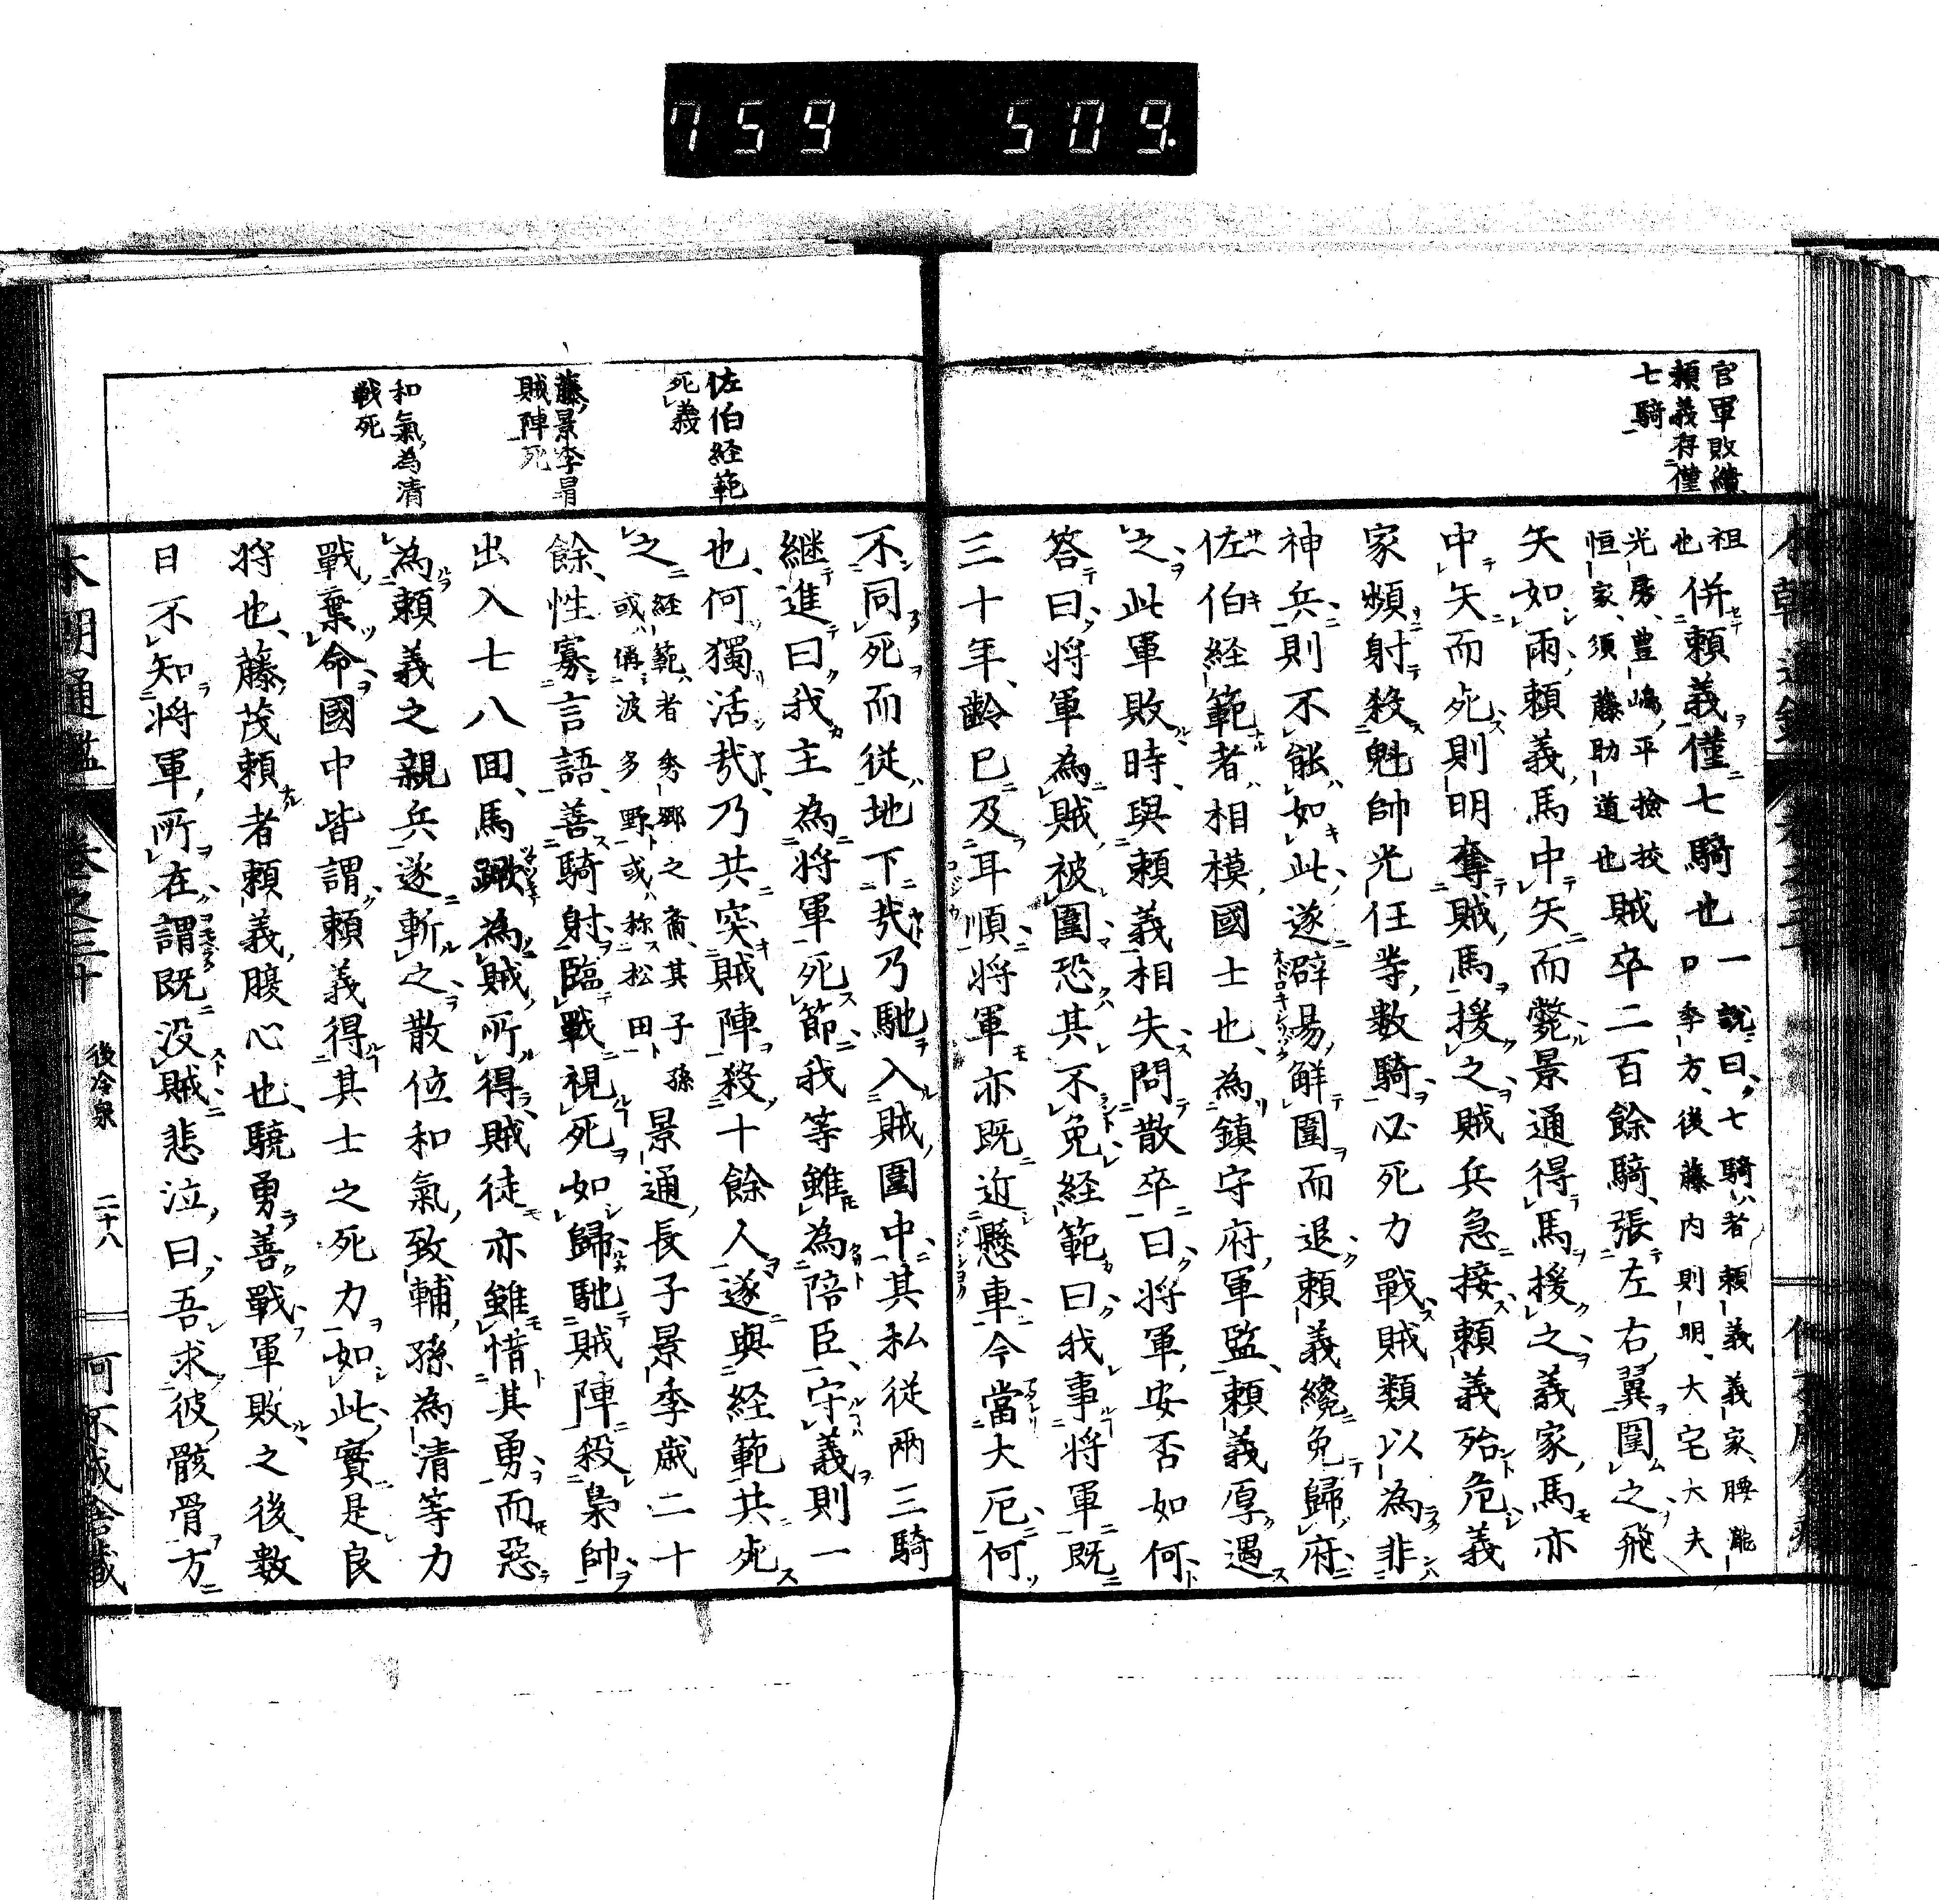 759 509.
官軍敗績
頼義存僅
七騎
祖
也
併頼義僅七騎也一
說曰七騎者頼義義家腰瀧
口季方後藤内則明大宅大夫
光房豊嶋平撿挍
恒家須藤助道也
賊卒二百餘騎張左右翼圍之飛
矢如雨頼義馬中矢而斃景通得馬援之義家馬亦
中矢而死則明奪賊馬援之賊兵急接頼義殆危義
家頻射殺魁帥光任等數騎必死力戰賊類以為非
神兵則不能如此遂辟易解圍而退頼義纔免歸府
佐伯経範者相模國士也為鎮守府軍監頼義厚遇
之此軍敗時與頼義相失問散卒曰将軍安否如何
答曰将軍為賊被圍恐其不免経範曰我事将軍既
三十年齡已及耳順将軍亦既近懸車今當大厄何
佐伯経範
死義
藤景季冐
賊陣死
和氣為清
戦死
不同死而従地下㢤乃馳入賊圍中其私従兩三騎
継進曰我主為将軍死節我等雖為陪臣守義則一
也何獨活㢤乃共突賊陣殺十餘人遂與経範共死
之
経範者秀郷之裔其子孫
或偁波多野或称松田
景通長子景季歳二十
餘性寡言語善騎射臨戰視死如歸馳賊陣殺梟帥
出入七八回馬蹶為賊所得賊徒亦雖惜其勇而惡
為頼義之親兵遂斬之散位和氣致輔孫為清等力
戰棄命國中皆謂頼義得其士之死力如此實是良
将也藤茂頼者頼義腹心也驍勇善戰軍敗之後數
日不知将軍所在謂既没賊悲泣曰吾求彼骸骨方
本朝通鑑 卷之三十 後冷泉 二十八